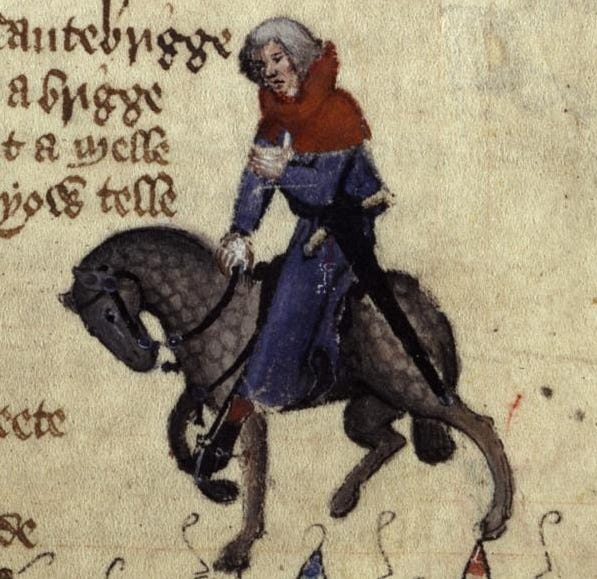 cantebrigge
a brigge
t a melle
yow telle
eete
de